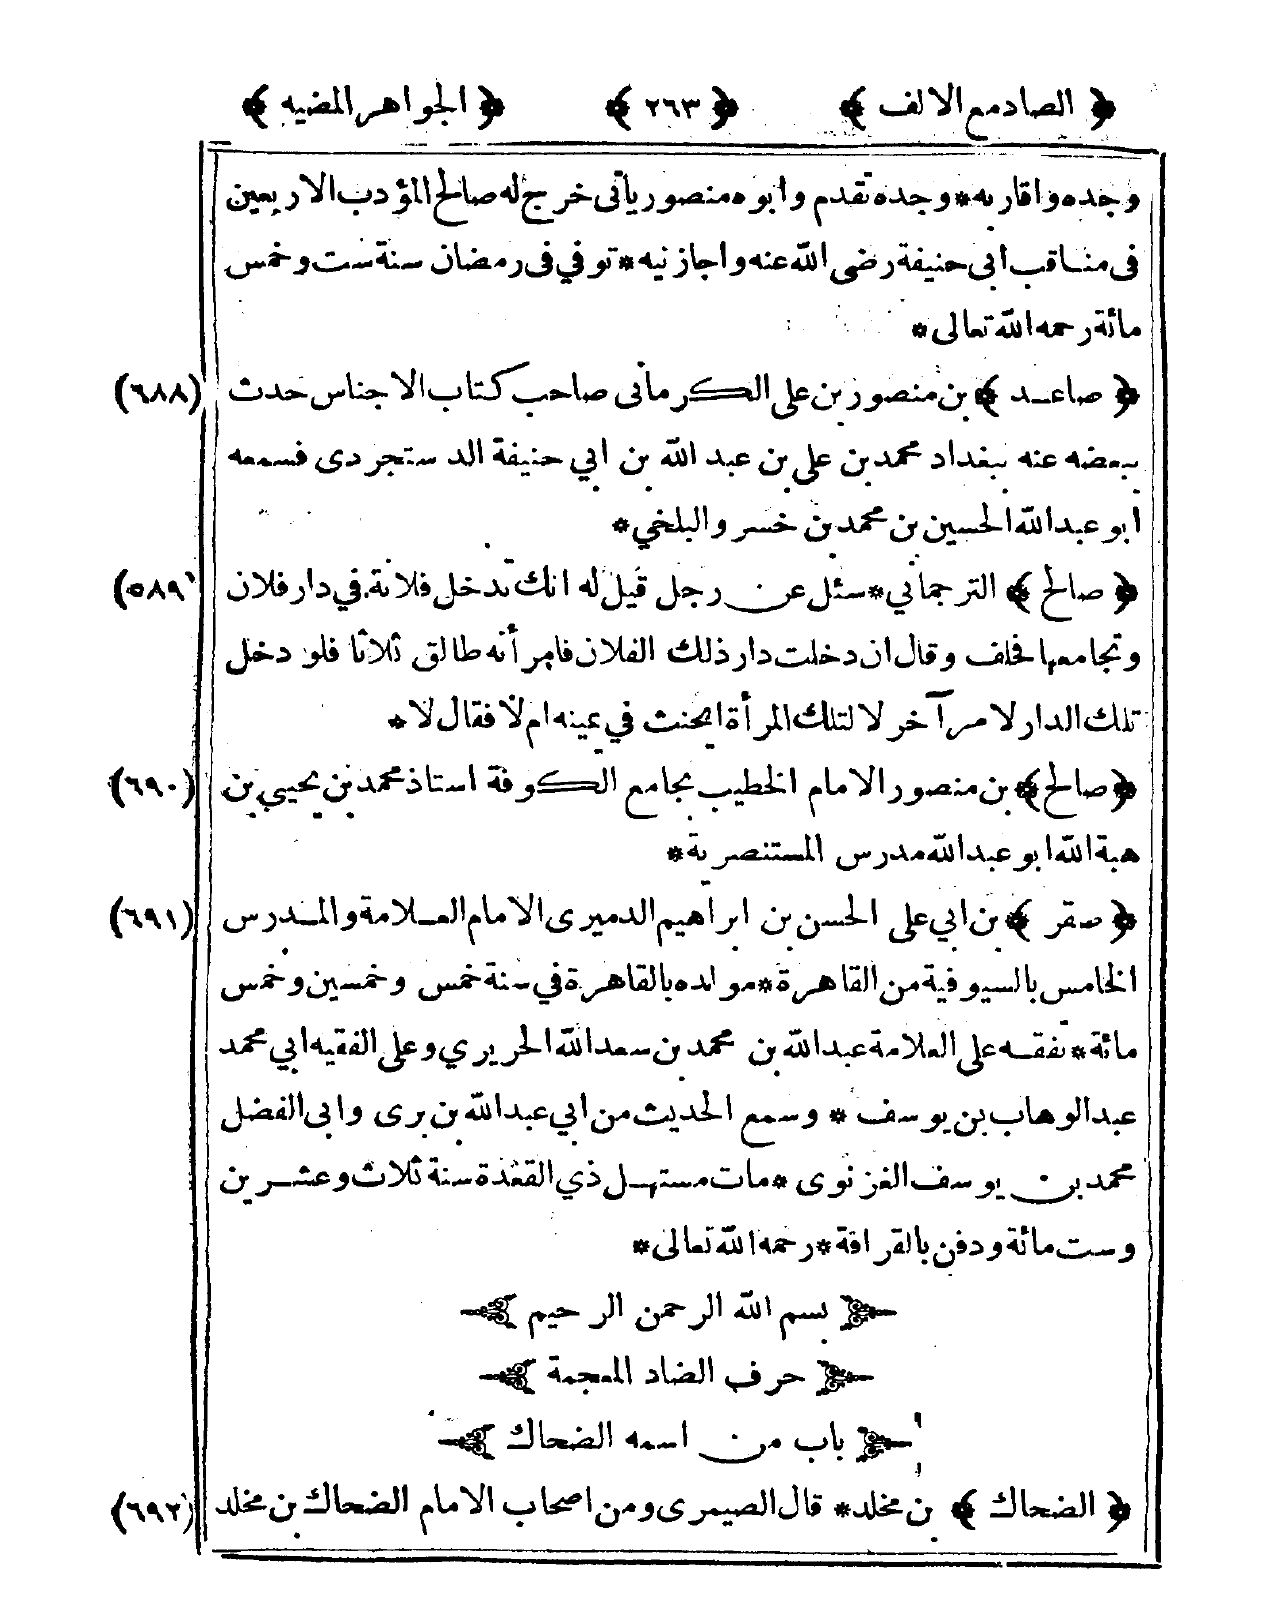 ﴿ الصاد مع الالف ﴾ ﴿ ٢٦٣ ﴾ ﴿ الجواهر المضيه ﴾
وجده واقاربه * وجده تقدم وابوه منصور يأتى خرج له صالح المؤدب الاربعين
فى مناقب أبى حنيفة رضى الله عنه واجازنيه * توفي فى رمضان سنة ست وخمس
مائة رحمه الله تعالى *
﴿ صاعد ﴾ بن منصور بن على الكرمانى صاحب كتاب الاجناس حدث (٦٨٨)
ببعضه عنه ببغداد محمد بن على بن عبد الله بن ابي حنيفة الدستجردى فسمعه
ابو عبد الله الحسين بن محمد بن خسرو البلخي *
﴿ صالح ﴾ الترجمانى * سئل عن رجل قيل له انك تدخل فلانة في دار فلان (٥٨٩)
وتجامعها فحلف وقال ان دخلت دار ذلك الفلان فامرأته طالق ثلاثا فلو دخل
تلك الدار لامر آخر لا لتلك المرأة ايحنث في يمينه ام لا فقال لا *
﴿ صالح ﴾ بن منصور الامام الخطيب بجامع الكوفة استاذ محمد بن يحيى بن (٦٩٠)
هبة الله ابو عبد الله مدرس المستنصرية *
﴿ صقر ﴾ بن ابي على الحسن بن ابراهيم الدميرى الامام العلامة والمدرس (٦٩١)
الخامس بالسيوفية من القاهرة * مولده بالقاهرة في سنة خمس وخمسين وخمس
مائة * تفقه على العلامة عبد الله بن محمد بن سعد الله الحريري وعلى الفقيه ابي محمد
عبد الوهاب بن يوسف * وسمع الحديث من ابي عبد الله بن برى وابى الفضل
محمد بن يوسف الغزنوى * مات مستهل ذي القعدة سنة ثلاث وعشرين
وست مائة ودفن بالقرافة * رحمه الله تعالى *
بسم الله الرحمن الرحيم
حرف الضاد المعجمة
باب من اسمه الضحاك
﴿ الضحاك ﴾ بن مخلد * قال الصيمرى ومن اصحاب الامام الضحاك بن مخلد (٦٩٢)